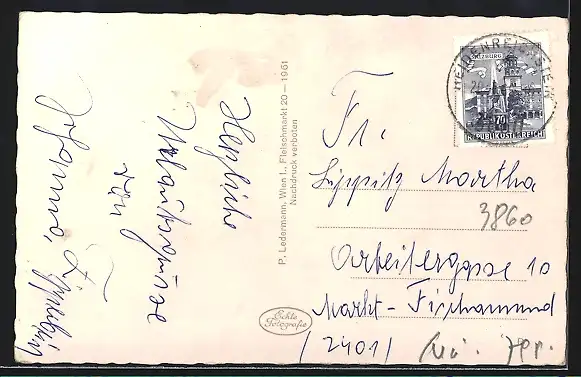 Herzliche
Urlaubsgrüsse
von
P. Ledermann, Wien I., Fleischmarkt 20 — 1961
Nachdruck verboten
Echte
Fotografie
SALZBURG
70
REPUBLIK ÖSTERREICH
Fr.
Lippitz Martha
3860
Arbeitergasse 10
Markt-Fischamend
(2401)